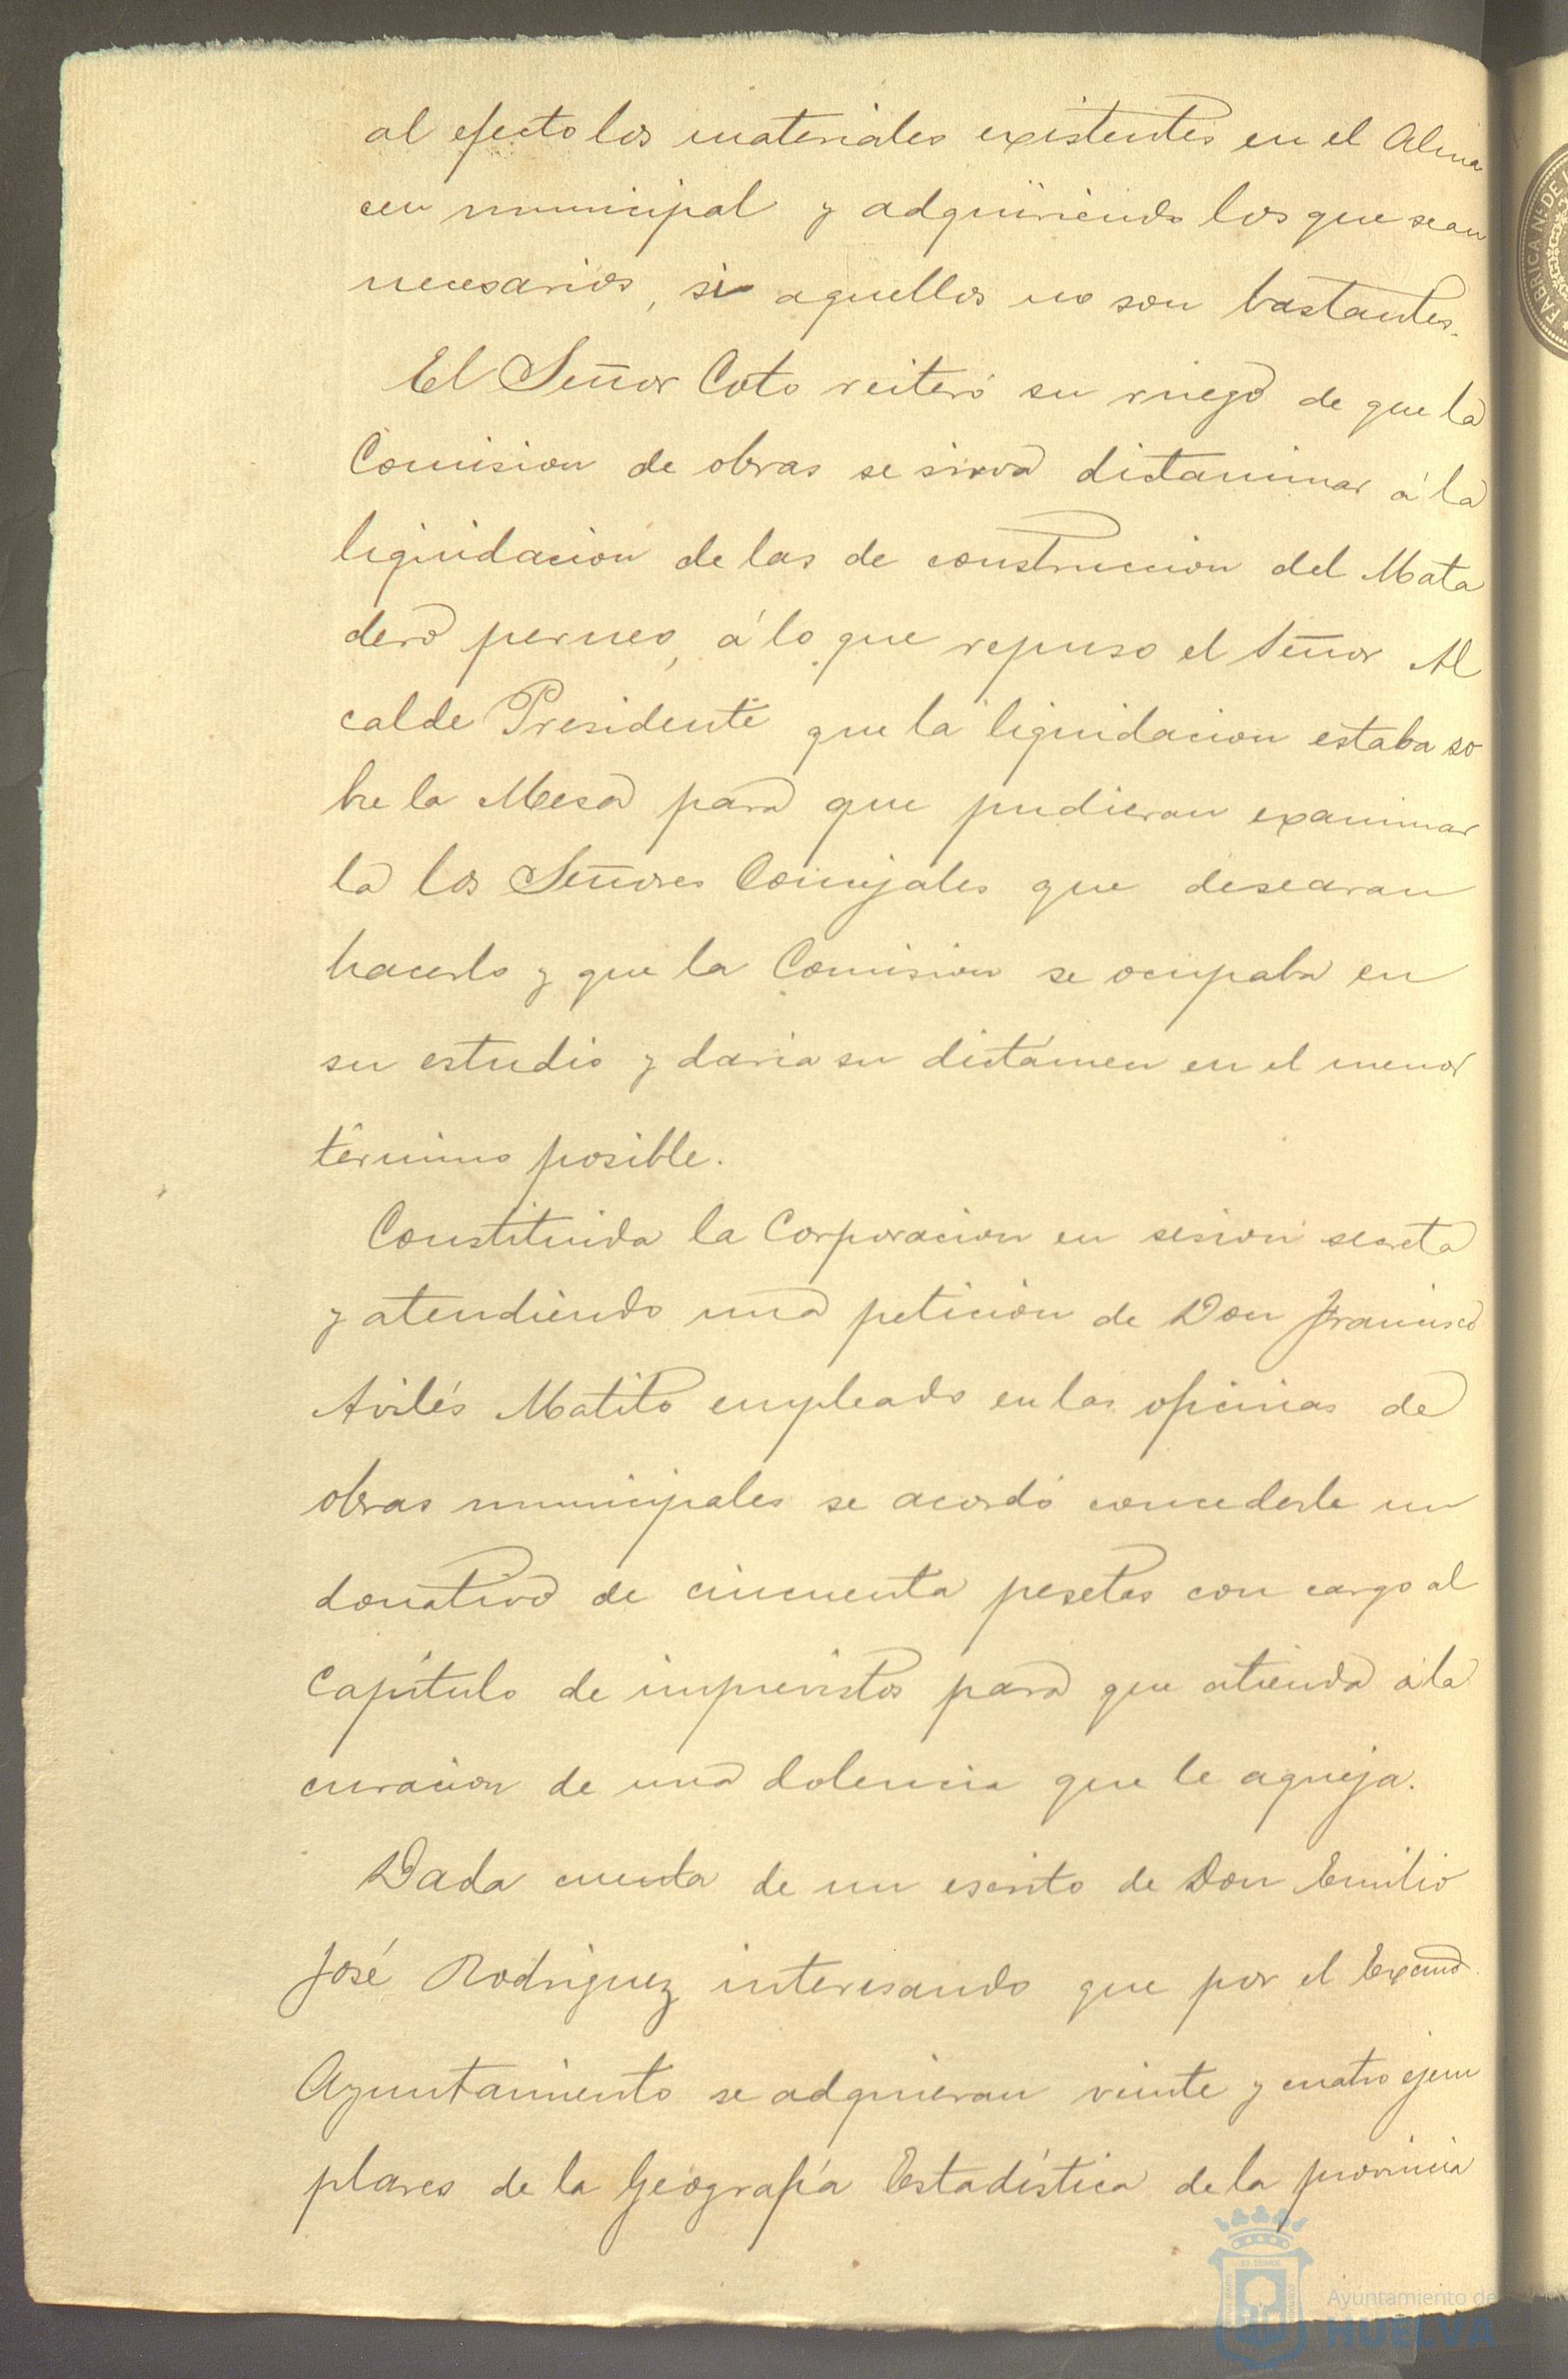 al efecto los materiales existentes en el Alma
cen municipal y adquiriendo los que sean
necesarios, si aquellos no son bastantes.
El Señor Coto reiteró su ruego de que la
Comision de obras se sirva dictaminar á la
liquidacion de las de construccion del Mata
dero perneo, á lo que repuso el Señor Al
calde Presidente que la liquidacion estaba so
bre la Mesa para que pudieran examinar
la los Señores Concejales que desearan
hacerlo y que la Comision se ocupaba en
su estudio y daria su dictámen en el menor
término posible.
Constituida la Corporacion en sesion secreta
y atendiendo una peticion de Don Francisco
Avilés Matito empleado en las oficinas de
obras municipales se acordó concederle un
donativo de cincuenta pesetas con cargo al
Capítulo de imprevistos para que atienda á la
curacion de una dolencia que le aqueja.
Dada cuenta de un escrito de Don Emilio
José Rodriguez interesando que por el Excmo.
Ayuntamiento se adquieran veinte y cuatro ejem
plares de la Geografía Estadística de la provincia
FABRICA N. DE
Ayuntamiento de
HUELVA